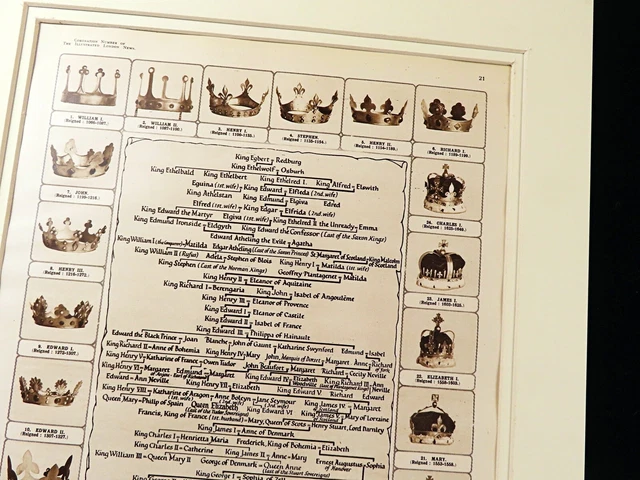 CORONATION NUMBER OF
THE ILLUSTRATED LONDON NEWS.
21
1. WILLIAM I.
(Reigned : 1066-1087.)
2. WILLIAM II.
(Reigned : 1087-1100.)
3. HENRY I.
(Reigned : 1100-1135.)
4. STEPHEN.
(Reigned : 1135-1154.)
5. HENRY II.
(Reigned : 1154-1189.)
6. RICHARD I.
(Reigned : 1189-1199.)
7. JOHN.
(Reigned : 1199-1216.)
8. HENRY III.
(Reigned : 1216-1272.)
9. EDWARD I.
(Reigned : 1272-1307.)
10. EDWARD II.
(Reigned : 1307-1327.)
CHARLES I.
(Reigned : 1625-1649.)
JAMES I.
(Reigned : 1603-1625.)
ELIZABETH I.
(Reigned : 1558-1603.)
21. MARY.
(Reigned : 1553-1558.)
King Egbert Redburg
King Ethelwolf Osburh
King Ethelbald King Ethelbert King Ethelred I. King Alfred Elswith
Eguina (1st. wife) King Edward Elfleda (2nd. wife)
King Athelstan King Edmund Elgiva Edred
Elfred (1st. wife) King Edgar Elfrida (2nd wife)
King Edward the Martyr Elgiva (1st. wife) King Ethelred II the Unready Emma
King Edmund Ironside Eldgyth King Edward the Confessor (Last of the Saxon Kings)
Edward Atheling the Exile Agatha
King William I (the Conqueror) Matilda Edgar Atheling (Last of the Saxon Princes) St. Margaret of Scotland King Malcolm of Scotland
King William II (Rufus) Adela Stephen of Blois King Henry I Matilda (1st. wife)
King Stephen (Last of the Norman Kings) Geoffrey Plantagenet Matilda
King Henry II Eleanor of Aquitaine
King Richard I = Berengaria King John Isabel of Angoulême
King Henry III Eleanor of Provence
King Edward I Eleanor of Castile
King Edward II Isabel of France
King Edward III Philippa of Hainault
Edward the Black Prince Joan Blanche John of Gaunt Katharine Swynford Edmund Isabel
King Richard II = Anne of Bohemia King Henry IV Mary John, Marquis of Dorset Margaret Anne Richard
King Henry V Katharine of France Owen Tudor John Beaufort Margaret Richard Cecily Neville
King Henry VI Margaret of Anjou Edmund Margaret King Edward IV Elizabeth King Richard III Ann
Edward = Ann Neville King Henry VII Elizabeth King Edward V Richard Edward
King Henry VIII Katharine of Aragon Anne Boleyn Jane Seymour King James IV Margaret
Queen Mary = Philip of Spain Queen Elizabeth (Last of the Tudor Sovereigns) King Edward VI King James V Mary of Lorraine
Francis, King of France (1st. husband) Mary, Queen of Scots Henry Stuart, Lord Darnley
King James I Anne of Denmark
King Charles I Henrietta Maria Frederick, King of Bohemia Elizabeth
King Charles II = Catherine King James II Anne Mary Ernest Augustus of Hanover Sophia
King William III = Queen Mary II George of Denmark = Queen Anne
(Last of the Stuart Sovereigns)
King George I Sophia of